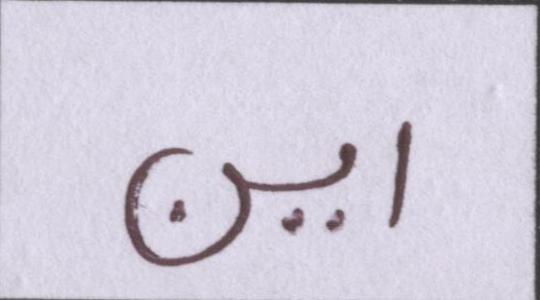 این